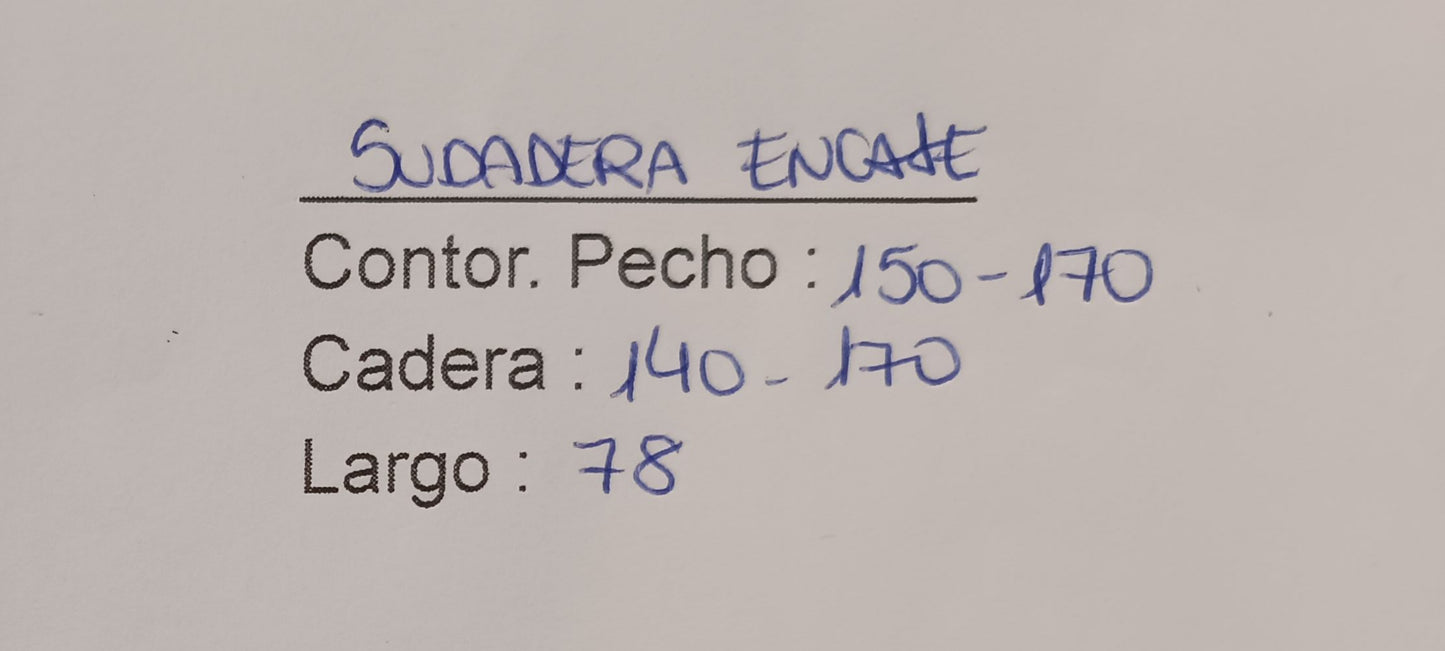 SUDADERA ENCAJE
Contor. Pecho : 150 - 170
Cadera : 140 - 170
Largo : 78